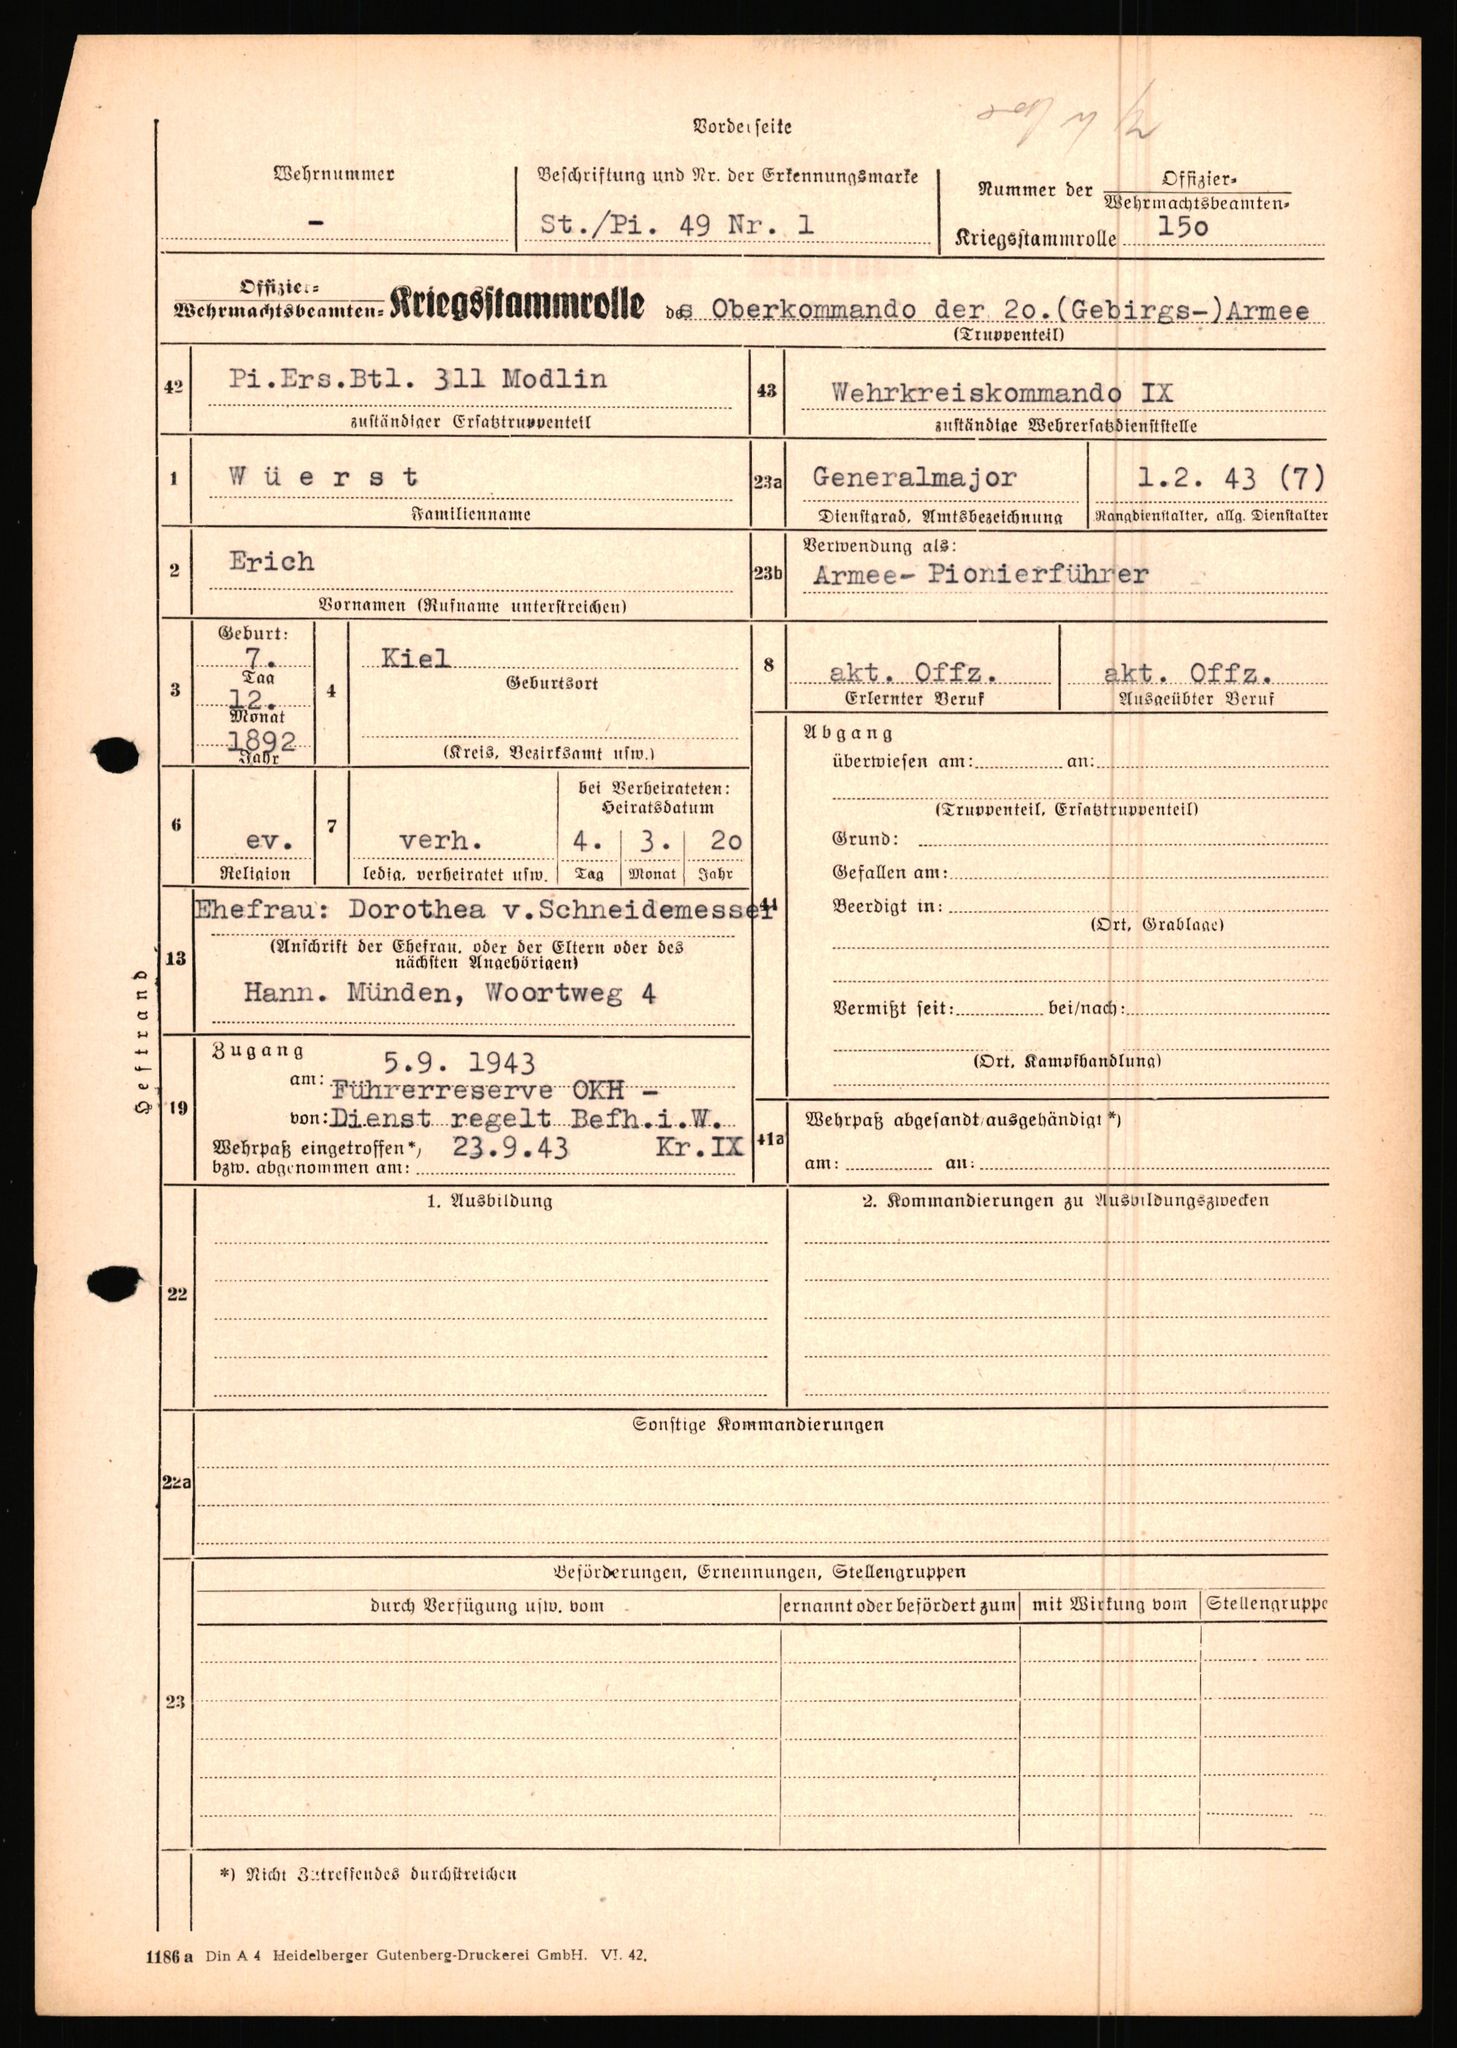 Vorderseite
Wehrnummer
-
Beschriftung und Nr. der Erkennungsmarke
St./Pi. 49 Nr. 1
Nummer der Offizier=
Wehrmachtsbeamten=
Kriegsstammrolle 150
Offizier=
Wehrmachtsbeamten= Kriegsstammrolle des Oberkommando der 20.(Gebirgs-)Armee
(Truppenteil)
42 Pi.Ers.Btl. 311 Modlin
zuständiger Ersatztruppenteil
43 Wehrkreiskommando IX
zuständige Wehrersatzdienststelle
1 W ü e r s t
Familienname
23a Generalmajor 1.2. 43 (7)
Dienstgrad, Amtsbezeichnung Rangdienstalter, allg. Dienstalter
2 Erich
Vornamen (Rufname unterstreichen)
23b Verwendung als:
Armee- Pionierführer
3 Geburt:
7.
Tag
12.
Monat
1892
Jahr
4 Kiel
Geburtsort
(Kreis, Bezirksamt usw.)
8 akt. Offz. akt. Offz.
Erlernter Beruf Ausgeübter Beruf
6 ev.
Religion
7 verh.
ledig, verheiratet usw.
bei Verheirateten:
Heiratsdatum
4. 3. 20
Tag Monat Jahr
13 Ehefrau: Dorothea v.Schneidemesser
(Anschrift der Ehefrau, oder der Eltern oder des
nächsten Angehörigen)
Hann. Münden, Woortweg 4
19 Zugang 5.9. 1943
am: Führerreserve OKH -
von: Dienst regelt Befh.i.W.
Wehrpaß eingetroffen*) 23.9.43 Kr.IX
bzw. abgenommen am:
41 Abgang
überwiesen am: an:
(Truppenteil, Ersatztruppenteil)
Grund:
Gefallen am:
Beerdigt in:
(Ort, Grablage)
Vermißt seit: bei/nach:
(Ort, Kampfhandlung)
41a Wehrpaß abgesandt/ausgehändigt*)
am: an:
Heftrand
22 1. Ausbildung 2. Kommandierungen zu Ausbildungszwecken
22a Sonstige Kommandierungen
23 Beförderungen, Ernennungen, Stellengruppen
durch Verfügung usw. vom ernannt oder befördert zum mit Wirkung vom Stellengruppe
*) Nicht Zutreffendes durchstreichen
1186 a Din A 4 Heidelberger Gutenberg-Druckerei GmbH. VI. 42.